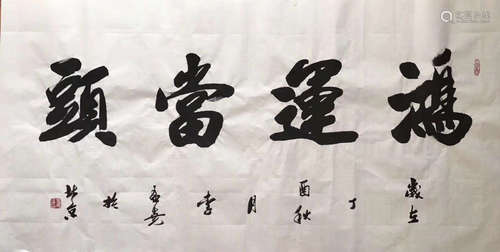 鴻運當頭
歲在丁酉秋月李
於北京